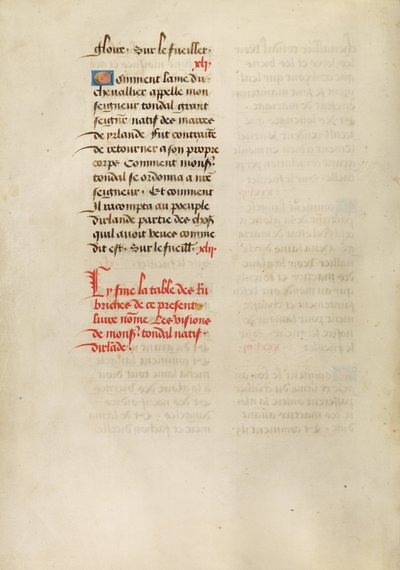 gloire. Sur le fueillet
xli.
Comment lame du
chevallier appelle mon
seigneur tondal grant
seignr natif des marces
de yrlande. Fut contraite
de retourner a son propre
corps. Comment monsr
tondal se ordonna a nre
seigneur. Et comment
Il racompta au poeuple
dirlande partie des choses
quil avoit veues comme
dit est. Sur le fueillt xlii.
Cy fine la table des Ru
briches de ce present
livre nomme Les visions
de monsr tondal natif
dirlande.